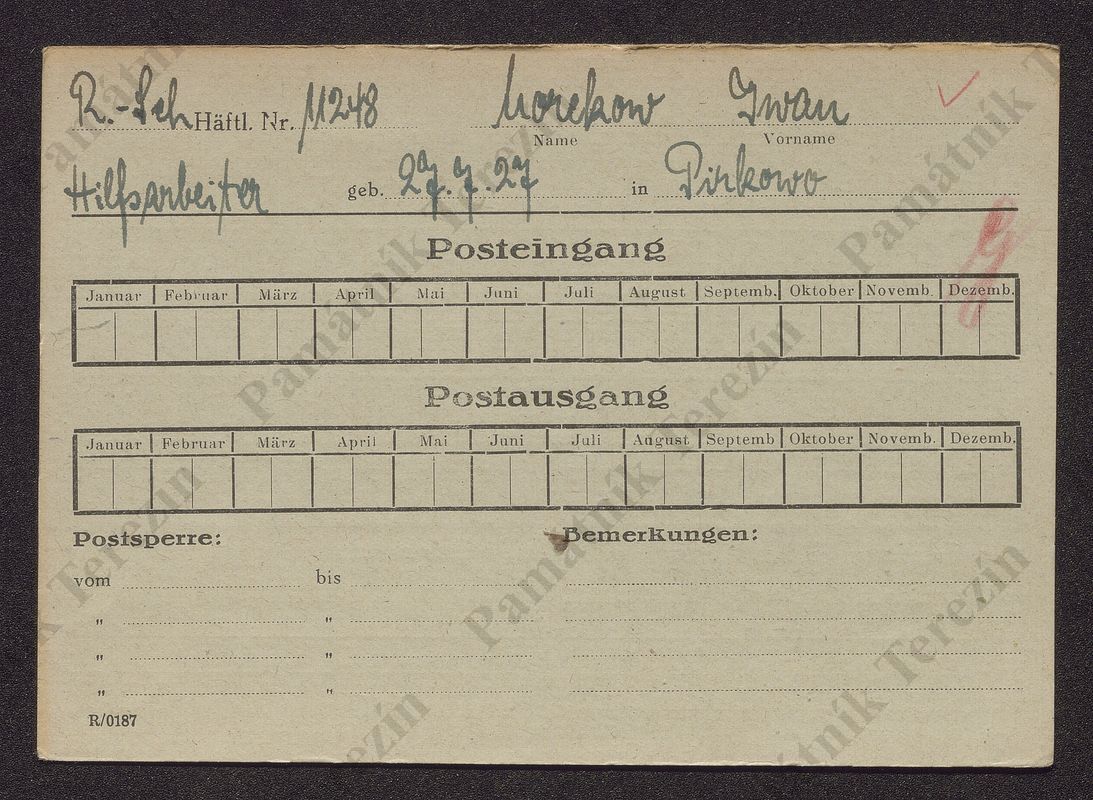 R.-Sch Häftl. Nr. 11248 Morekow Iwan
Name Vorname
Hilfsarbeiter geb. 27.7.27 in Pirkowo
Posteingang
Januar Februar März April Mai Juni Juli August Septemb. Oktober Novemb. Dezemb.
Postausgang
Januar Februar März April Mai Juni Juli August Septemb Oktober Novemb. Dezemb.
Postsperre: Bemerkungen:
vom bis
" "
" "
" "
R/0187
Památník Terezín